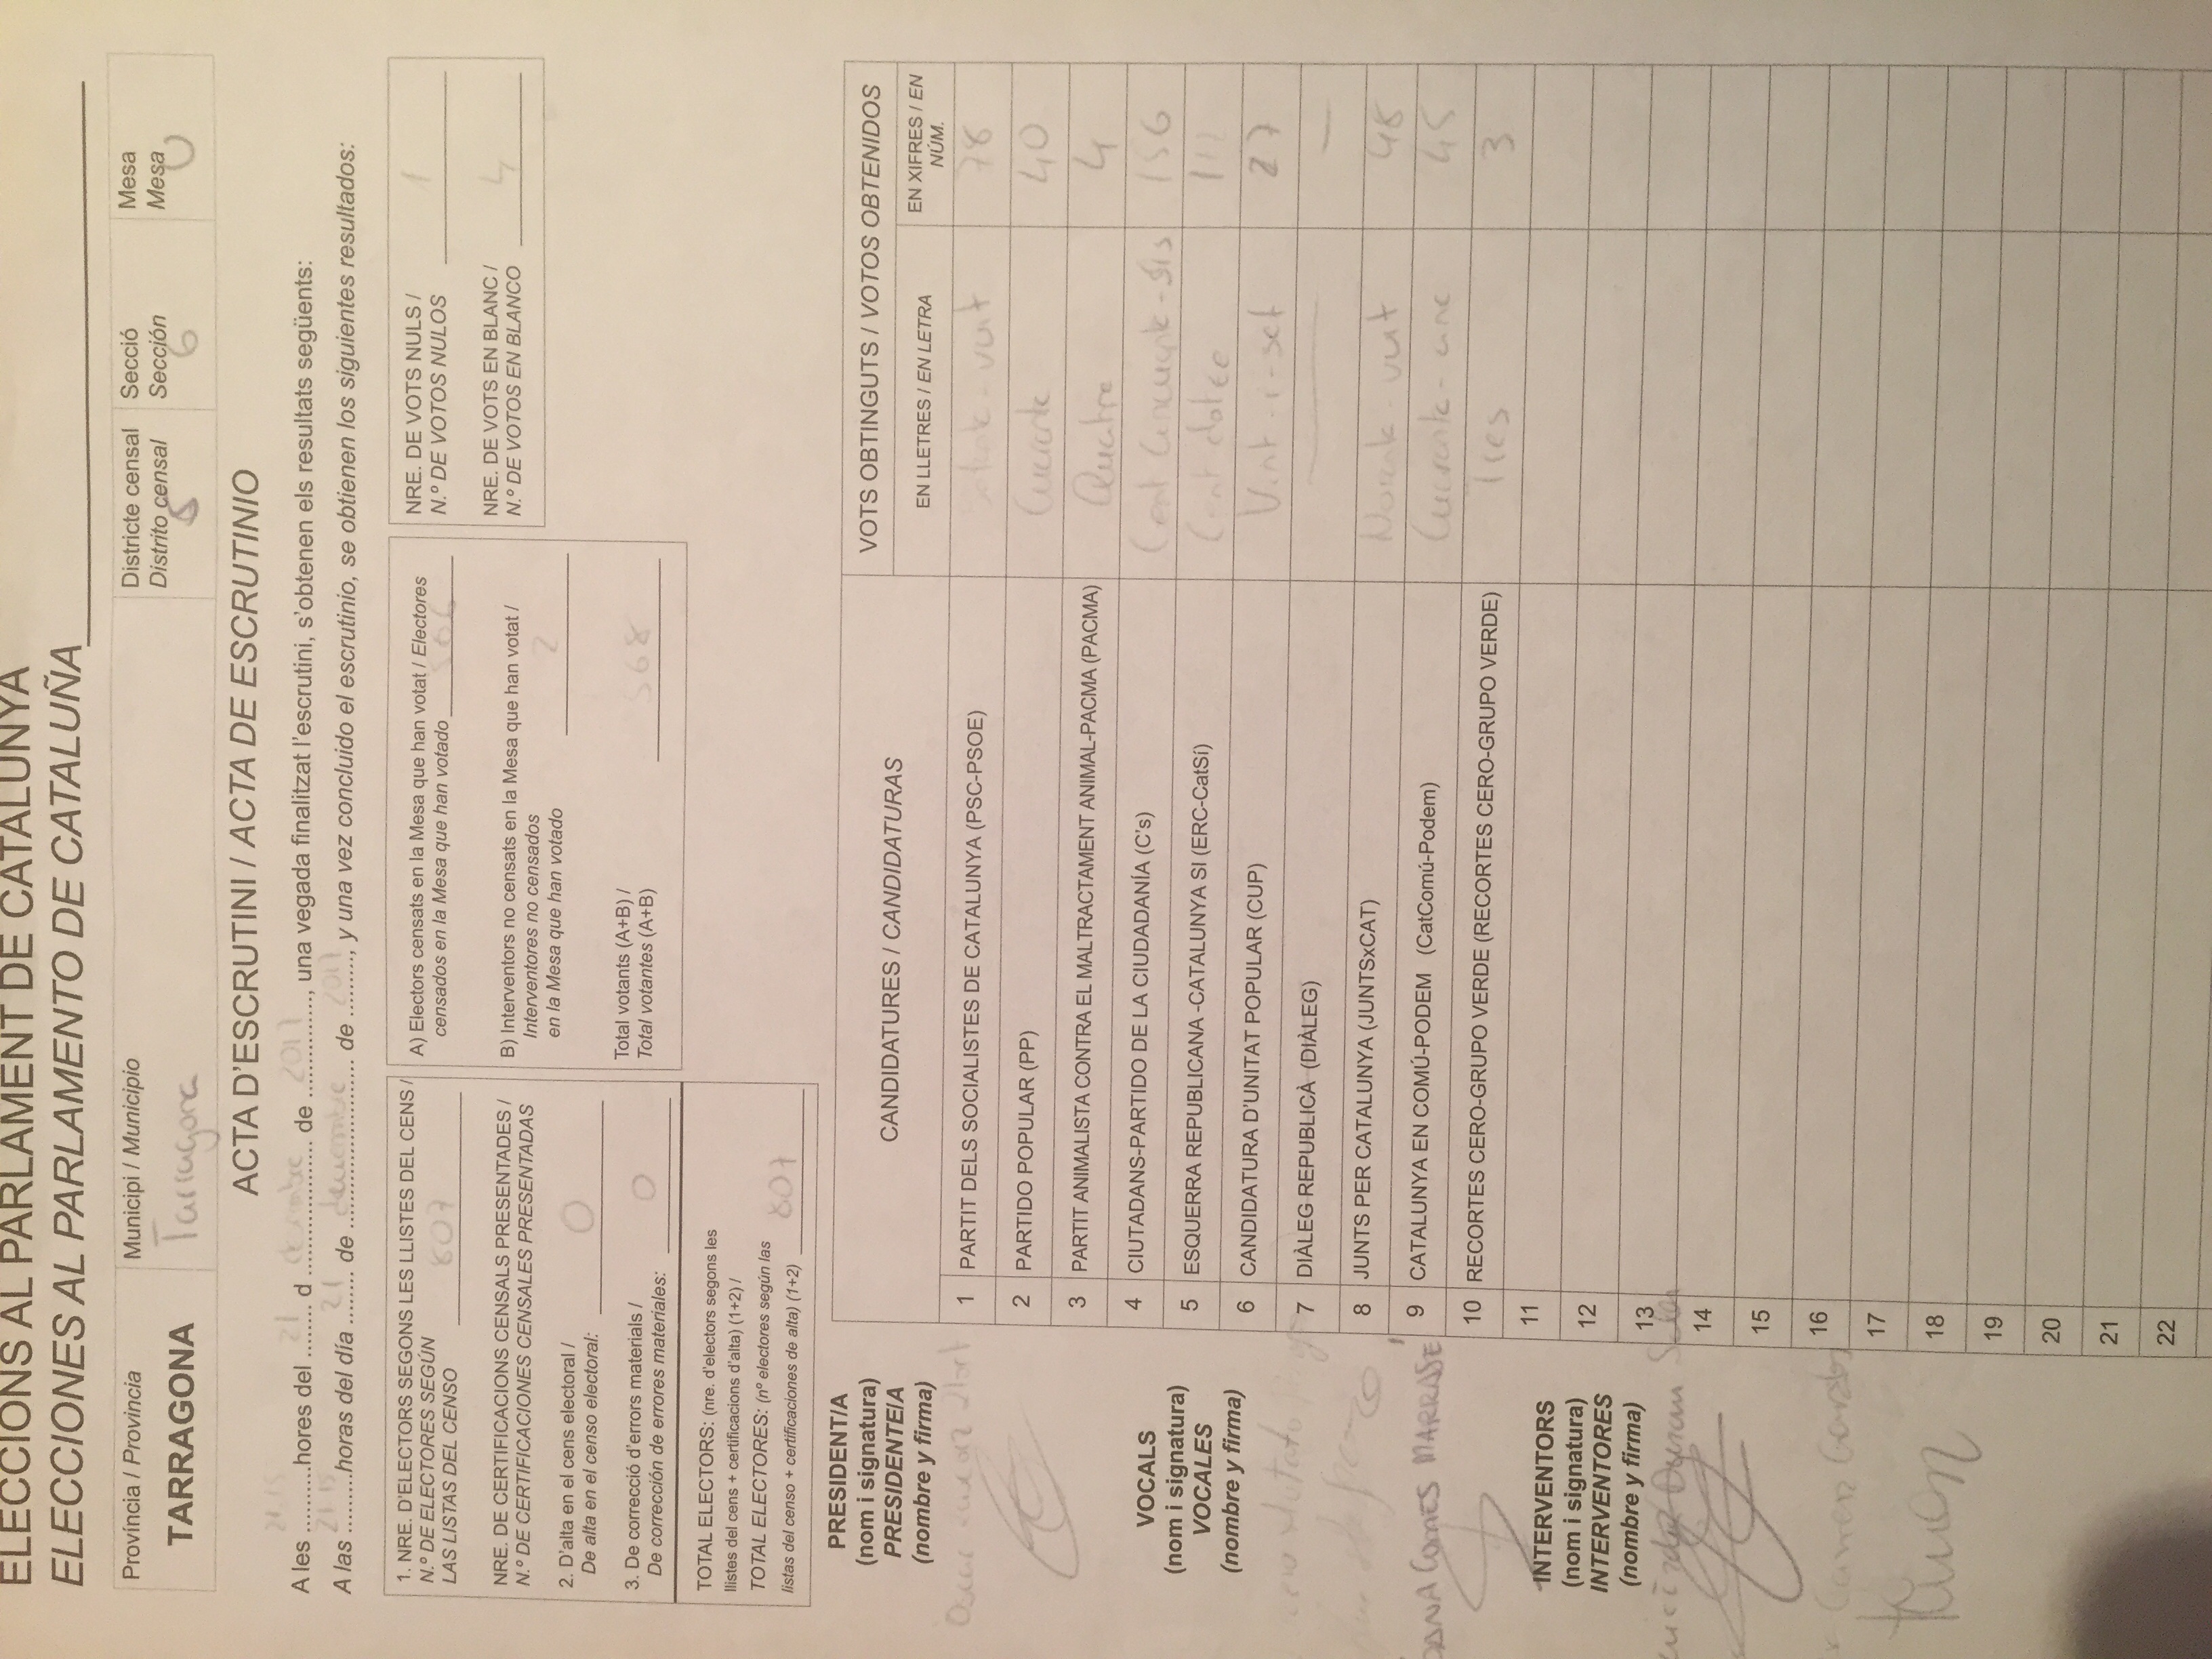 ELECCIONS AL PARLAMENT DE CATALUNYA
ELECCIONES AL PARLAMENTO DE CATALUÑA
Província / Provincia
TARRAGONA
Municipi / Municipio
Tarragona
Districte censal
Distrito censal
Secció
Sección
6
Mesa
Mesa
U
ACTA D'ESCRUTINI / ACTA DE ESCRUTINIO
A les 21.15 hores del 21 d desembre de 2017, una vegada finalitzat l'escrutini, s'obtenen els resultats següents:
A las 21.15 horas del día 21 de de 2017, y una vez concluido el escrutinio, se obtienen los siguientes resultados:
1. NRE. D'ELECTORS SEGONS LES LLISTES DEL CENS /
N.º DE ELECTORES SEGÚN
LAS LISTAS DEL CENSO 807
NRE. DE CERTIFICACIONS CENSALS PRESENTADES /
N.º DE CERTIFICACIONES CENSALES PRESENTADAS
2. D'alta en el cens electoral /
De alta en el censo electoral: 0
3. De correcció d'errors materials /
De corrección de errores materiales: 0
TOTAL ELECTORS: (nre. d'electors segons les
llistes del cens + certificacions d'alta) (1+2) /
TOTAL ELECTORES: (nº electores según las
listas del censo + certificaciones de alta) (1+2) 807
A) Electors censats en la Mesa que han votat / Electores
censados en la Mesa que han votado 566
B) Interventors no censats en la Mesa que han votat /
Interventores no censados
en la Mesa que han votado 2
Total votants (A+B) /
Total votantes (A+B) 568
NRE. DE VOTS NULS /
N.º DE VOTOS NULOS 1
NRE. DE VOTS EN BLANC /
N.º DE VOTOS EN BLANCO 4
PRESIDENT/A
(nom i signatura)
PRESIDENTE/A
(nombre y firma)
Oscar
VOCALS
(nom i signatura)
VOCALES
(nombre y firma)
COMES MARRASÉ
INTERVENTORS
(nom i signatura)
INTERVENTORES
(nombre y firma)
Duran
Carmen
CANDIDATURES / CANDIDATURAS
VOTS OBTINGUTS / VOTOS OBTENIDOS
EN LLETRES / EN LETRA
EN XIFRES / EN
NÚM.
1 PARTIT DELS SOCIALISTES DE CATALUNYA (PSC-PSOE) vuit 78
2 PARTIDO POPULAR (PP) Cuaranta 40
3 PARTIT ANIMALISTA CONTRA EL MALTRACTAMENT ANIMAL-PACMA (PACMA) Quatre 4
4 CIUTADANS-PARTIDO DE LA CIUDADANÍA (C's) Cent Cincuanta-sis 156
5 ESQUERRA REPUBLICANA -CATALUNYA SI (ERC-CatSí) Cent dotze 112
6 CANDIDATURA D'UNITAT POPULAR (CUP) Vint-i-set 27
7 DIÀLEG REPUBLICÀ (DIÀLEG) — —
8 JUNTS PER CATALUNYA (JUNTSxCAT) vuit
9 CATALUNYA EN COMÚ-PODEM (CatComú-Podem) Cuaranta 45
10 RECORTES CERO-GRUPO VERDE (RECORTES CERO-GRUPO VERDE) Tres 3
11
12
13
14
15
16
17
18
19
20
21
22